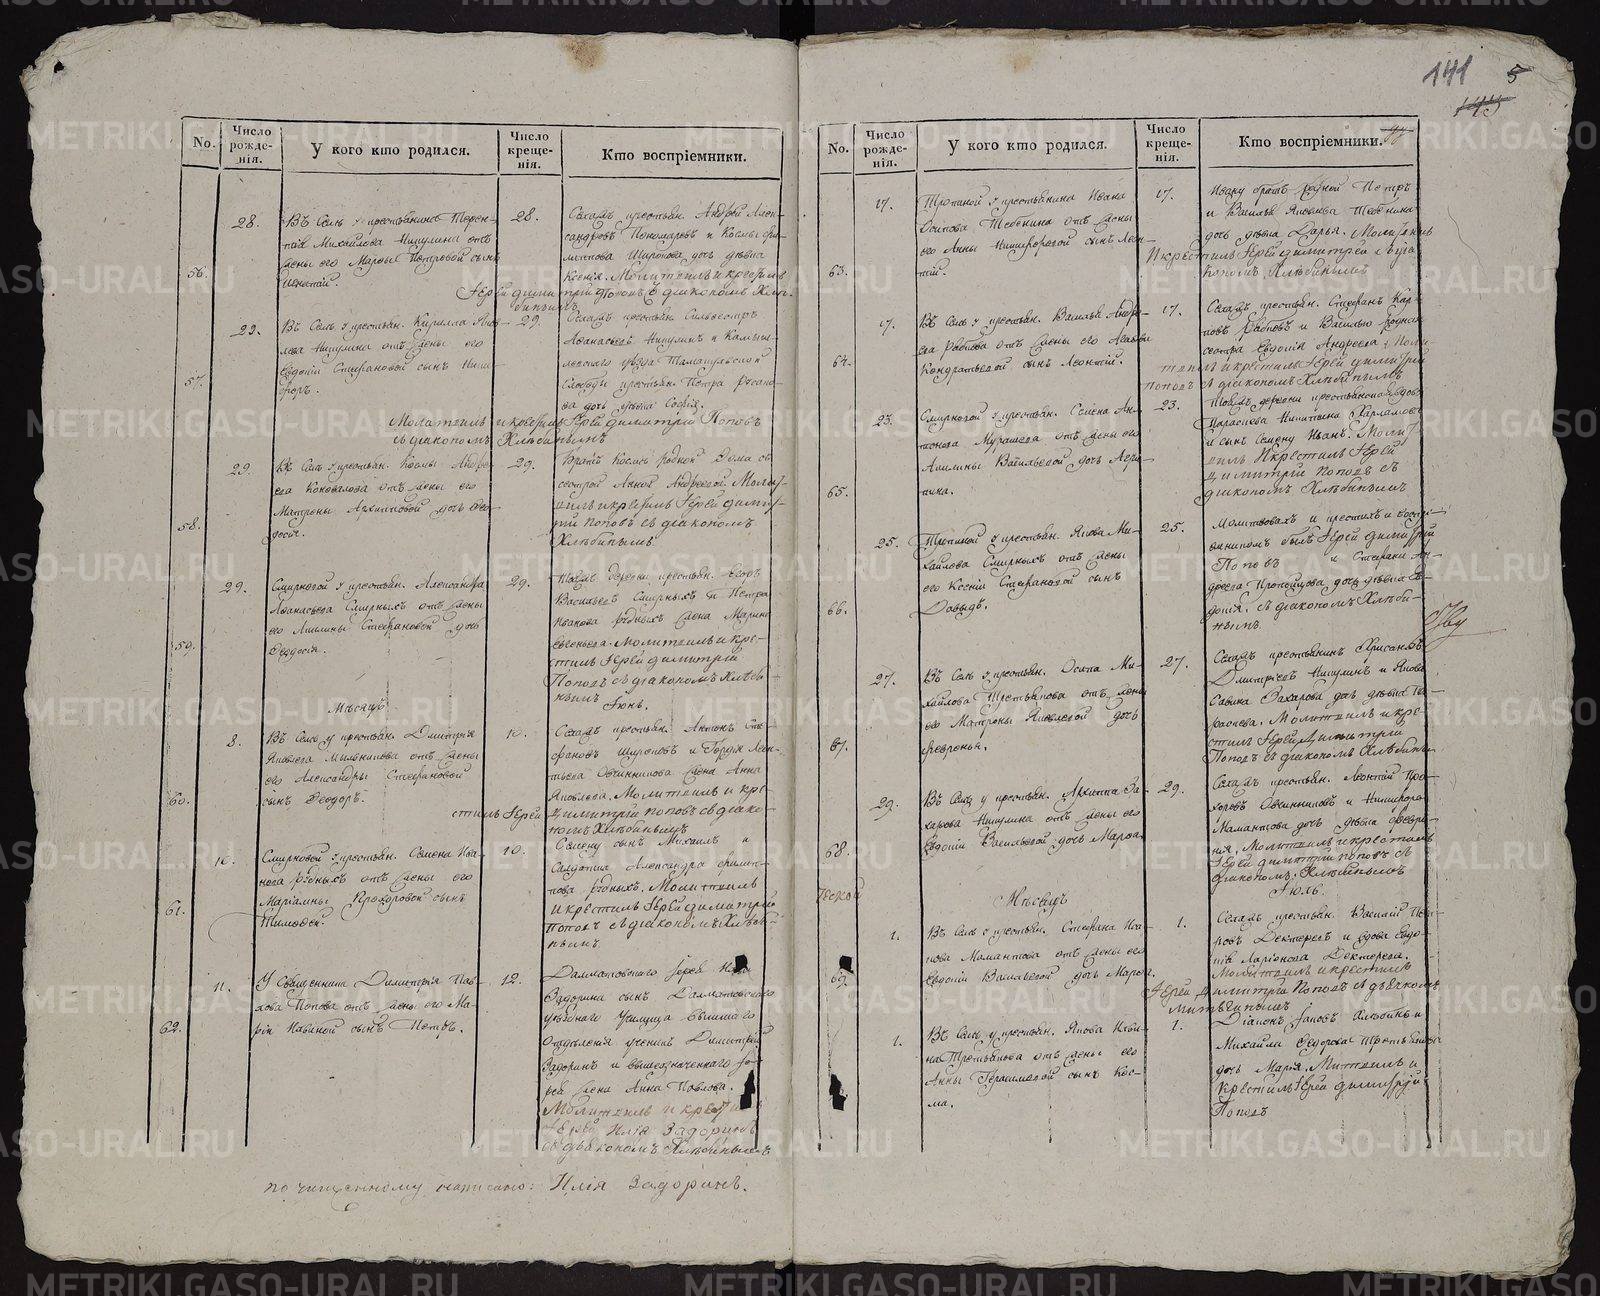 141 5
145
No.
Число рожде-нія.
У кого кто родился.
Число креще-нія.
Кто воспріемники.
56.
28.
Въ Селѣ у крестьянина Терен-
тія Михайлова Никулина отъ
жены его Марѳы Петровой сынъ
28.
Селамъ крестьян. Андрей Алек-
сандровъ Пономаревъ и Космы Фи-
липова Широкова дочь дѣвка
Ксенія. Молитвилъ и крестилъ
Іерей Димитрій Поповъ съ діакономъ Хлѣ-
бинымъ
57.
29.
Въ Селѣ у крестьян. Кирилла Яков-
лева Никулина отъ жены его
Евдокіи Стефановой сынъ Ники-
форъ.
29.
Селамъ крестьян. Сильвестръ
Аѳанасьевъ Никулинъ и Камыш-
ловского уѣзда Тамакульской
Слободы крестьян. Петра
дочь дѣвка Софія.
Молитвилъ и крестилъ Іерей Димитрій Поповъ
съ діакономъ Хлѣбинымъ
58.
29.
Въ Селѣ у крестьян. Космы Андре-
ева Коновалова отъ жены его
Матроны Архиповой дочь Ѳео-
досія.
29.
Братъ Космѣ родной Ѳома съ
сестрой Анной Андреевой Моли-
твилъ и крестилъ Іерей Димит-
рій Поповъ съ діакономъ
Хлѣбинымъ
59.
29.
Смирновой у крестьян. Александра
Аѳанасьева Смирныхъ отъ жены
его Акилины Стефановой дочь
Ѳеодосія.
29.
Тоежъ деревни крестьян. Егоръ
Васильевъ Смирныхъ и Петра
Иванова рѣдныхъ жена Марина
Евгеньева. Молитвилъ и кре-
стилъ Іерей Димитрій
Поповъ съ діакономъ Хлѣби-
нымъ
Мѣсяцъ Іюнь.
60.
8.
Въ Селѣ у крестьян. Димитрія
Яковлева Мильникова отъ жены
его Александры Стефановой
сынъ Ѳеодоръ.
10.
Селамъ крестьян. Антонъ Сте-
фановъ Широковъ и Гордѣя Леон-
тьева Овчинникова жена Анна
Яковлева. Молитвилъ и кре-
стилъ Іерей Димитрій Поповъ съ діако-
номъ Хлѣбинымъ
61.
10.
Смирновой у крестьян. Семена Ива-
нова рѣдныхъ отъ жены его
Маріамны Прохоровой сынъ
Тимоѳей.
10.
Семену сынъ Михаилъ и
Александра Филип-
пова рѣдныхъ. Молитвилъ
и крестилъ Іерей Димитрій
Поповъ съ діакономъ Хлѣби-
нымъ
62.
11.
У Священника Димитрія Пав-
лова Попова отъ жены его Ма-
ріи Ивановой сынъ Петръ.
12.
Далматовского Іерея Иліи
Задорина сынъ Далматовского
уѣздного Училища вышшаго
Отдѣленія ученикъ Димитрій
Задоринъ и вышеозначенного Іе-
рея жена Анна Павлова.
Молитвилъ и крестилъ
Іерей Илія Задоринъ
съ діакономъ Хлѣбинымъ
по чищенному написано: Илія Задоринъ.
No.
Число рожде-нія.
У кого кто родился.
Число креще-нія.
Кто воспріемники.
63.
17.
Тропиной у крестьянина Ивана
Осипова Теебнина отъ жены
его Анны Никифоровой сынъ Леон-
тій.
17.
Ивану братъ родной Петръ
и Василья Яковлева
дочь дѣвка Дарья. Молитвилъ
и крестилъ Іерей Димитрій
Поповъ Хлѣбинымъ
64.
17.
Въ Селѣ у крестьян. Василья Андре-
ева Рябкова отъ жены его Агаѳьи
Кондратьевой сынъ Леонтій.
17.
Селамъ крестьян. Стефанъ Кар-
повъ Рябковъ и Василью родная
сестра Евдокія Андреева. Моли-
твилъ и крестилъ Іерей Димитрій
Поповъ съ діакономъ Хлѣбинымъ
65.
23.
Смирновой у крестьян. Семена Ан-
тонова Мурашова отъ жены его
Акилины Васильевой дочь Агри-
пина.
23.
Тоежъ деревни крестьянская вдова
Параскева Никитина Варламова
и сынъ Семену Иванъ. Моли-
твилъ и крестилъ Іерей
Димитрій Поповъ съ
діакономъ Хлѣбинымъ
66.
25.
Тропиной у крестьян. Якова Ми-
хайлова Смирныхъ отъ жены
его Ксеніи Стефановой сынъ
Давыдъ.
25.
Молитвовалъ и крестилъ и воспрі-
емникомъ былъ Іерей Димитрій
Поповъ и Стефана Ан-
дреева Прокопцова дочь дѣвка Ев-
докія. съ діакономъ Хлѣби-
нымъ
67.
27.
Въ Селѣ у крестьян. Осипа Ми-
хайлова Третьякова отъ жены
его Матроны Яковлевой дочь
Февронья.
27.
Селамъ крестьянинъ Хрисанѳъ
Димитріевъ Никулинъ и Якова
Савина Захарова дочь дѣвка Па-
раскева. Молитвилъ и кре-
стилъ Іерей Димитрій
Поповъ съ діакономъ Хлѣбинымъ
68.
29.
Въ Селѣ у крестьян. Архипа За-
харова Никулина отъ жены его
Евдокіи Васильевой дочь Марѳа.
29.
Селамъ крестьян. Леонтій Про-
хоровъ Овчинниковъ и Никифора
Мамантова дочь дѣвка Февро-
нія. Молитвилъ и крестилъ
Іерей Димитрій Поповъ съ
діакономъ Хлѣбинымъ
Мѣсяцъ Іюль.
69.
1.
Въ Селѣ у крестьян. Стефана Ива-
нова Мамантова отъ жены его
Евдокіи Васильевой дочь Марѳа.
1.
Селамъ крестьян. Василій Пет-
ровъ Дектеревъ и вдова Евдо-
кія Ларіонова Дектерева.
Молитвилъ и крестилъ
Іерей Димитрій Поповъ съ дьячкомъ
1.
Въ Селѣ у крестьян. Якова Ильи-
на Третьякова отъ жены его
Анны Герасимовой сынъ Кос-
ма.
1.
Діаконъ Іаковъ Хлѣбинъ и
Михаила Ѳедорова Третьякова
дочь Марія. Молитвилъ и
крестилъ Іерей Димитрій
Поповъ
METRIKI.GASO-URAL.RU